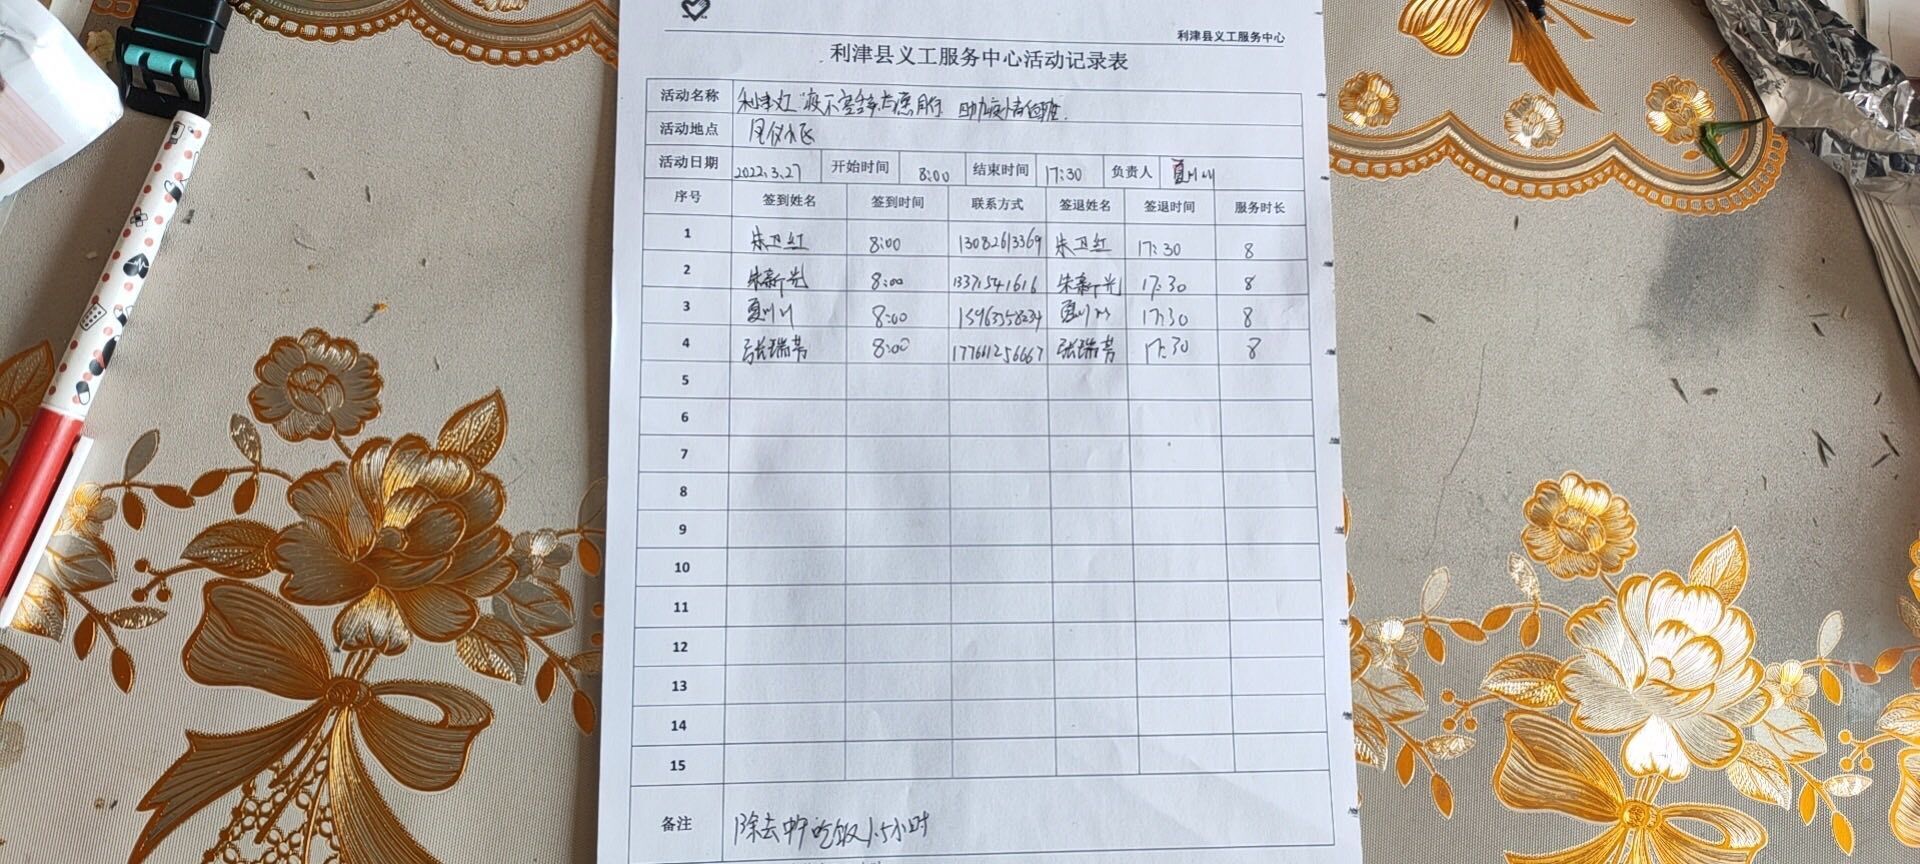 利津县义工服务中心
利津县义工服务中心活动记录表
活动名称
活动地点
活动日期 2022.3.27 开始时间 8:00 结束时间 17:30 负责人 夏川川
序号 签到姓名 签到时间 联系方式 签退姓名 签退时间 服务时长
1 朱卫红 8:00 13082613369 朱卫红 17:30 8
2 朱新光 8:00 13371541616 朱新光 17:30 8
3 夏川川 8:00 夏川川 17:30 8
4 张瑞芳 8:00 17761256667 张瑞芳 17:30 8
5
6
7
8
9
10
11
12
13
14
15
备注 除去中午吃饭1.5小时